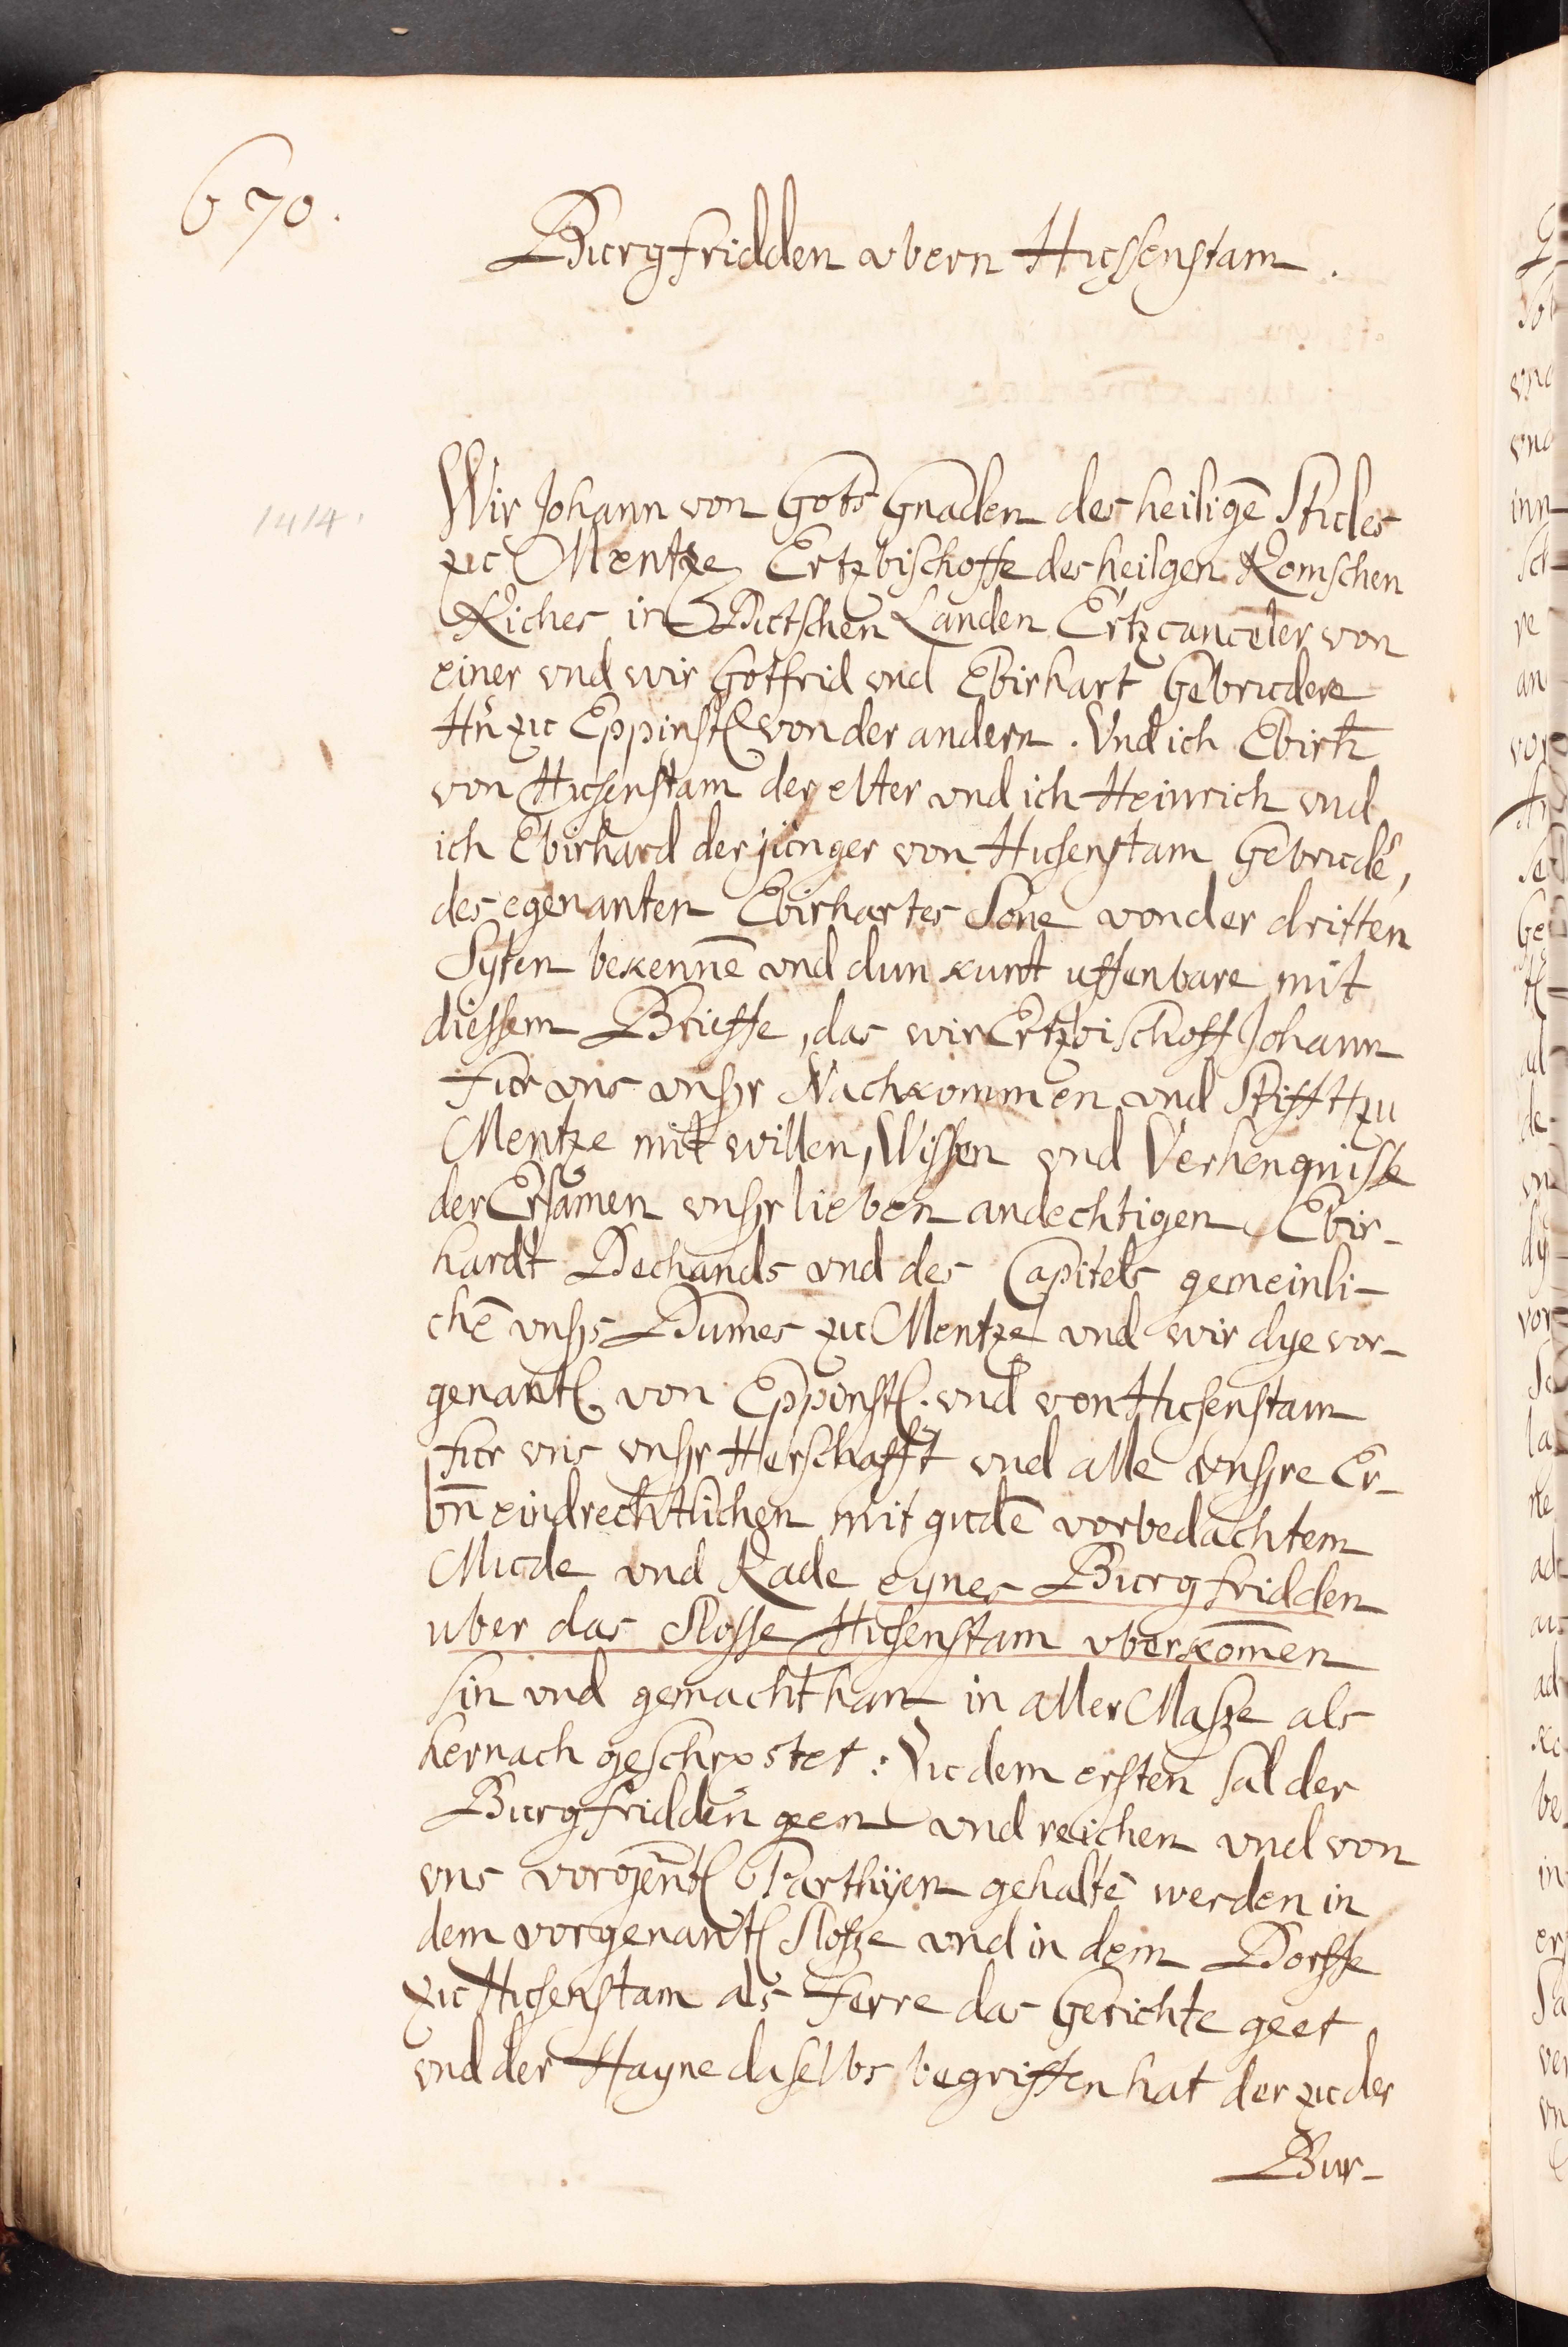 670.
Burgfridden vbern Hussenstam.
1414.
Wir Johann von Gots Gnaden des heiligē Stules
zu Mentze Ertzbischoffe des heilgen Romschen
Riches in Dutschen Landen Ertzcanceler von
einer vnd wir Gotfrid vnd Ebirhart Gebrudere
Hn̄ zu Eppinst. von der andern. Vnd ich Ebirh̄
von Husenstam der elter vnd ich Heinrich vnd
ich Ebirhard der jünger von Husenstam Gebrudē,
des egenanten Ebirhartes Sone von der dritten
Syten bekennē vnd dun kunt uffenbare mit
diessem Brieffe, das wir Ertzbischoff Johann
fur vns vnsr Nachkommen vnd Stifft zu
Mentze mit willen, Wissen vnd Verhengnisse
der Ersamen vnsr lieben andechtigen, Ebir-
hardt Dechands vnd des Capitels gemeinli-
chē vnsrs Dumes zu Mentze vnd wir dye vor-
genant. von Eppinst. vnd von Husenstam
fur vns vnsr Herschafft vnd alle vnsre Er-
bn̄ eindrechtlichen mit gudē vorbedachtem
Mude vnd Rade eynes Burgfridden
uber das Slosse Husenstam vberkom̄en
sin vnd gemacht han in aller Masze als
hernach geschr. stet: Zu dem ersten sal der
Burgfridden geen vnd reichen vnd von
vns vorgen̄t. Parthyen gehaltē werden in
dem vorgenant. Slosze vnd in dem Dorffe
zu Husenstam als ferre das Gerichte geet
vnd der Hayne daselbs begriffen hat der zu der
Bur-